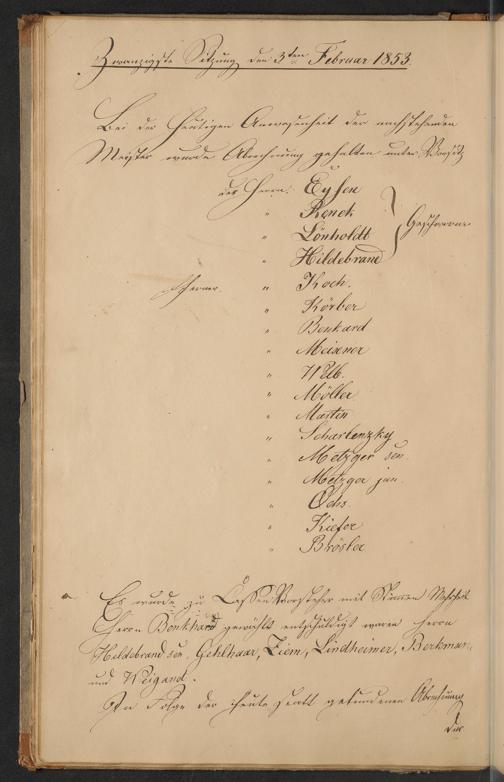 Zwanzigste Sitzung den 3ten Februar 1853.
Bei der heutigen Anwesenheit der nachstehenden
Meister wurde Abrechnung gehalten unter Vorsitz
des Herrn: Eysen
" Renck
" Lönholdt
" Hildebrand
Geschworne
ferner. " Koch.
" Körber
" Benkard
" Meixner
" Welb.
" Möller
" Martin
" Scharlenzky
" Metzger sen.
" Metzger jun.
" Ochs.
" Kiefer
" Brösler
Es wurde zu Vorsteher mit Stimmen Mehrheit
Herrn Benkhard gewählt entschuldigt waren Herrn
Hildebrand sen. Gehlhaar, Ziem, Lindheimer, Berkman,
und Weigand.
In Folge der heute statt gefundenen Abrechnung
die